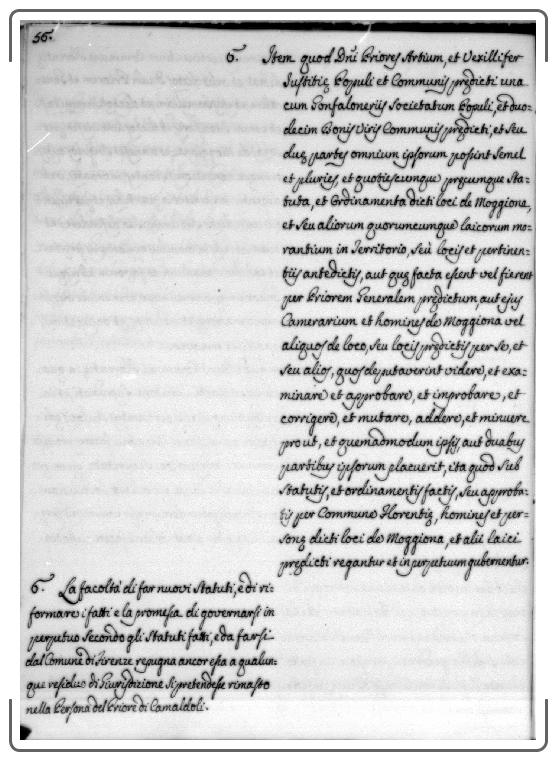 56.
6. Item quod Dn̄i Priores Artium, et Vexillifer
Justitię Populi et Communis prędicti una
cum Gonfaloneriis Societatum Populi, et duo=
decim Bonis Viris Communis prędicti, et seu
duę partes omnium ipsorum possint semel
et pluries, et quotiescumque pręcumque Sta=
tuta, et Ordinamenta dicti loci de Moggiona,
et seu aliorum quorumcumque laicorum mo=
rantium in Territorio, seu locis et pertinen=
tiis antedictis, aut quę facta essent vel fierent
per Priorem Generalem prędictum aut ejus
Camerarium et homines de Moggiona vel
aliquos de loco, seu locis prędictis per se, et
seu alios, quos deputaverint videre, et exa=
minare et approbare, et improbare, et
corrigere, et mutare, addere, et minuere
prout, et quemadmodum ipsis, aut duabus
partibus ipsorum placuerit, ita quod sub
Statutis, et ordinamentis factis, seu approba=
tis per Commune Florentię, homines et per=
sonę dicti loci de Moggiona, et alii laici
prędicti regantur et in perpetuum gubernentur.
6. La facoltà di far nuovi Statuti, e di ri=
formare i fatti e la promessa di governarsi in
perpetuo secondo gli Statuti fatti, e da farsi
dal Comune di Firenze repugna ancor essa a qualun=
que residuo di Giurisdizione si pretendesse rimasto
nella Persona del Priore di Camaldoli.